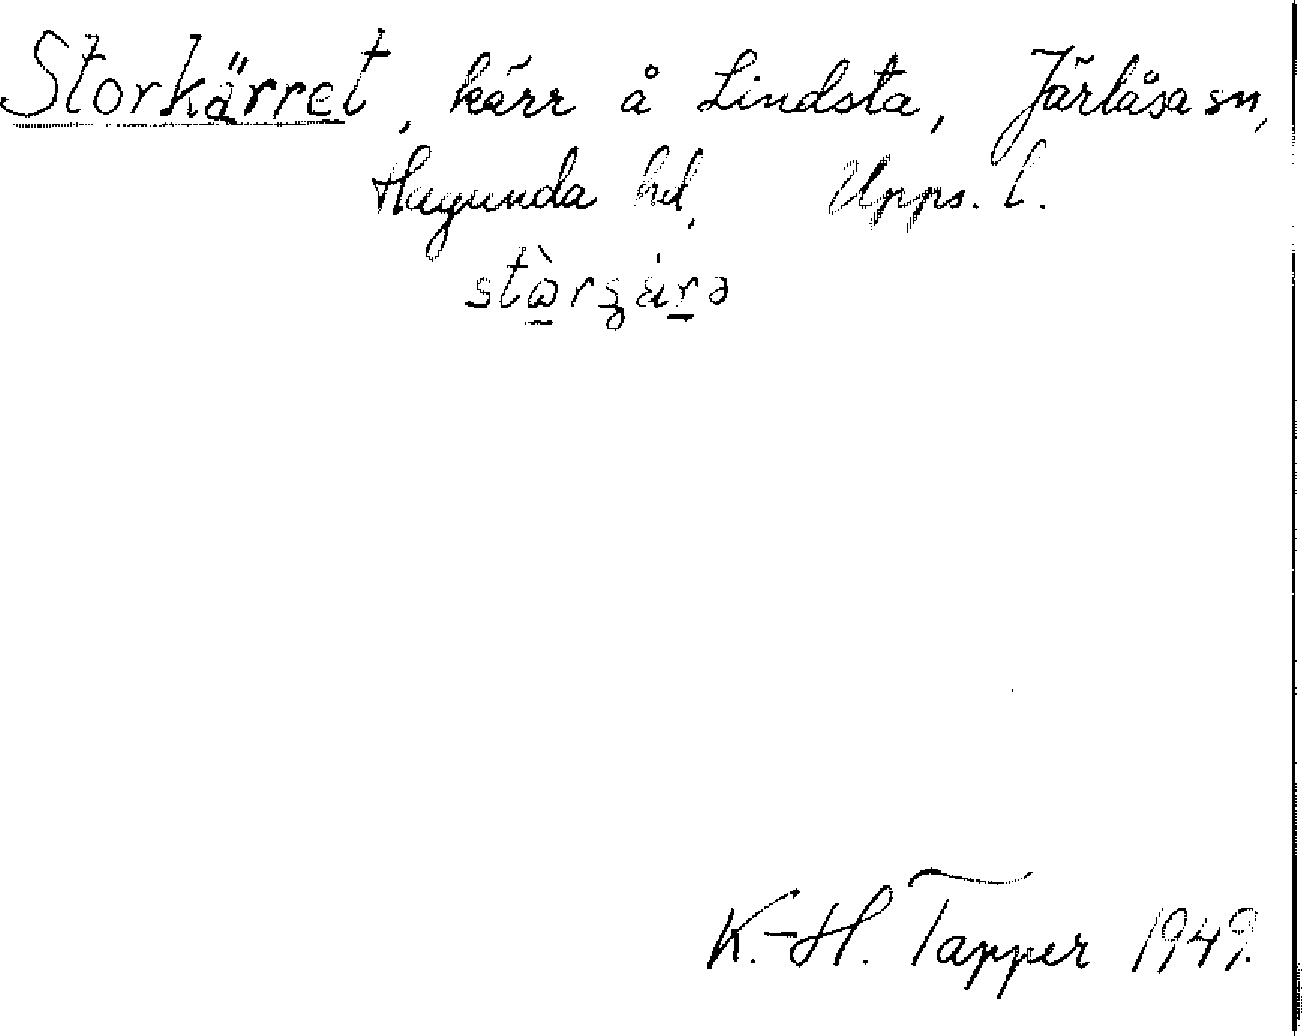 Storkärret, kärr å Lindsta, Järlåsa sn,
Hagunda hd, Upps. l.
K.-H. Tapper 1949.